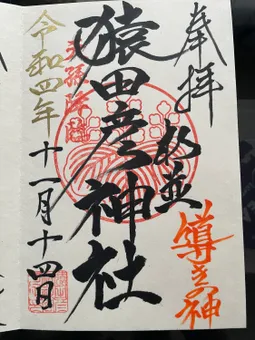 奉拝
導き神
猿田彦神社
天孫降臨
令和四年
十一月十四日